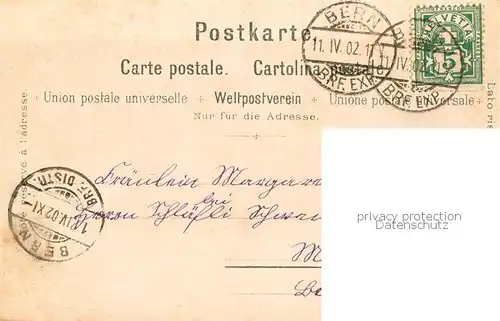 Postkarte.
Carte postale. Cartolina posta
Union postale universelle + Weltpostverein + Unione postale universale
Nur für die Adresse.
réservé à l'adresse.
Lato ris
BERN
11. IV. 02. 11
BRF. EXP.
BRF. EXP.
HELVETIA
5
BERN
BRF. DISTR.
IV. 02 XI
Fräulein Margar
bei
Herrn Schläfli
M
privacy protection
Datenschutz